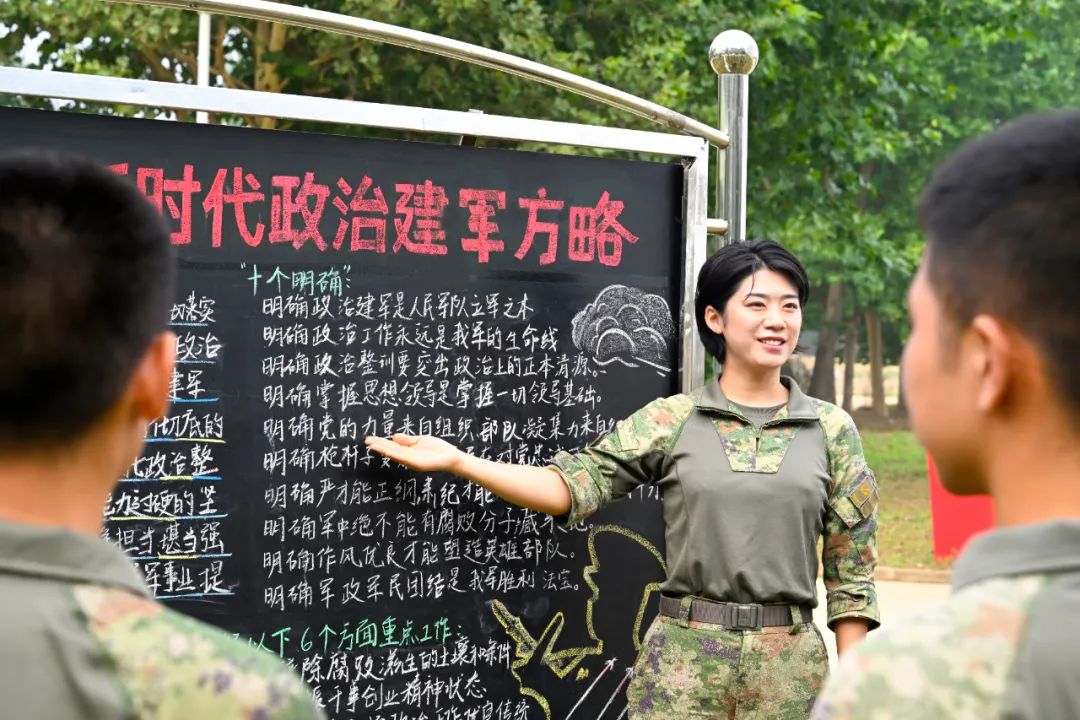 时代政治建军方略
"十个明确":
明确政治建军是人民军队立军之本
明确政治工作永远是我军的生命线
明确政治整训要突出政治上的正本清源。
明确掌握思想领导是掌握一切领导基础。
明确党的力量来自组织 部队凝集力来自
明确枪杆子要
明确严才能正纲,肃纪才能
明确军中绝不能有腐败分子藏
明确作风优良才能塑造英雄部队。
明确军政军民团结是我军胜利法宝。
落实
政治
建军
彻底的
代政治整
力过硬的坚
担当堪当强
军事业提
以下6个方面重点工作:
除腐败滋生的土壤和条件
干事创业精神状态
政治工作优良传统